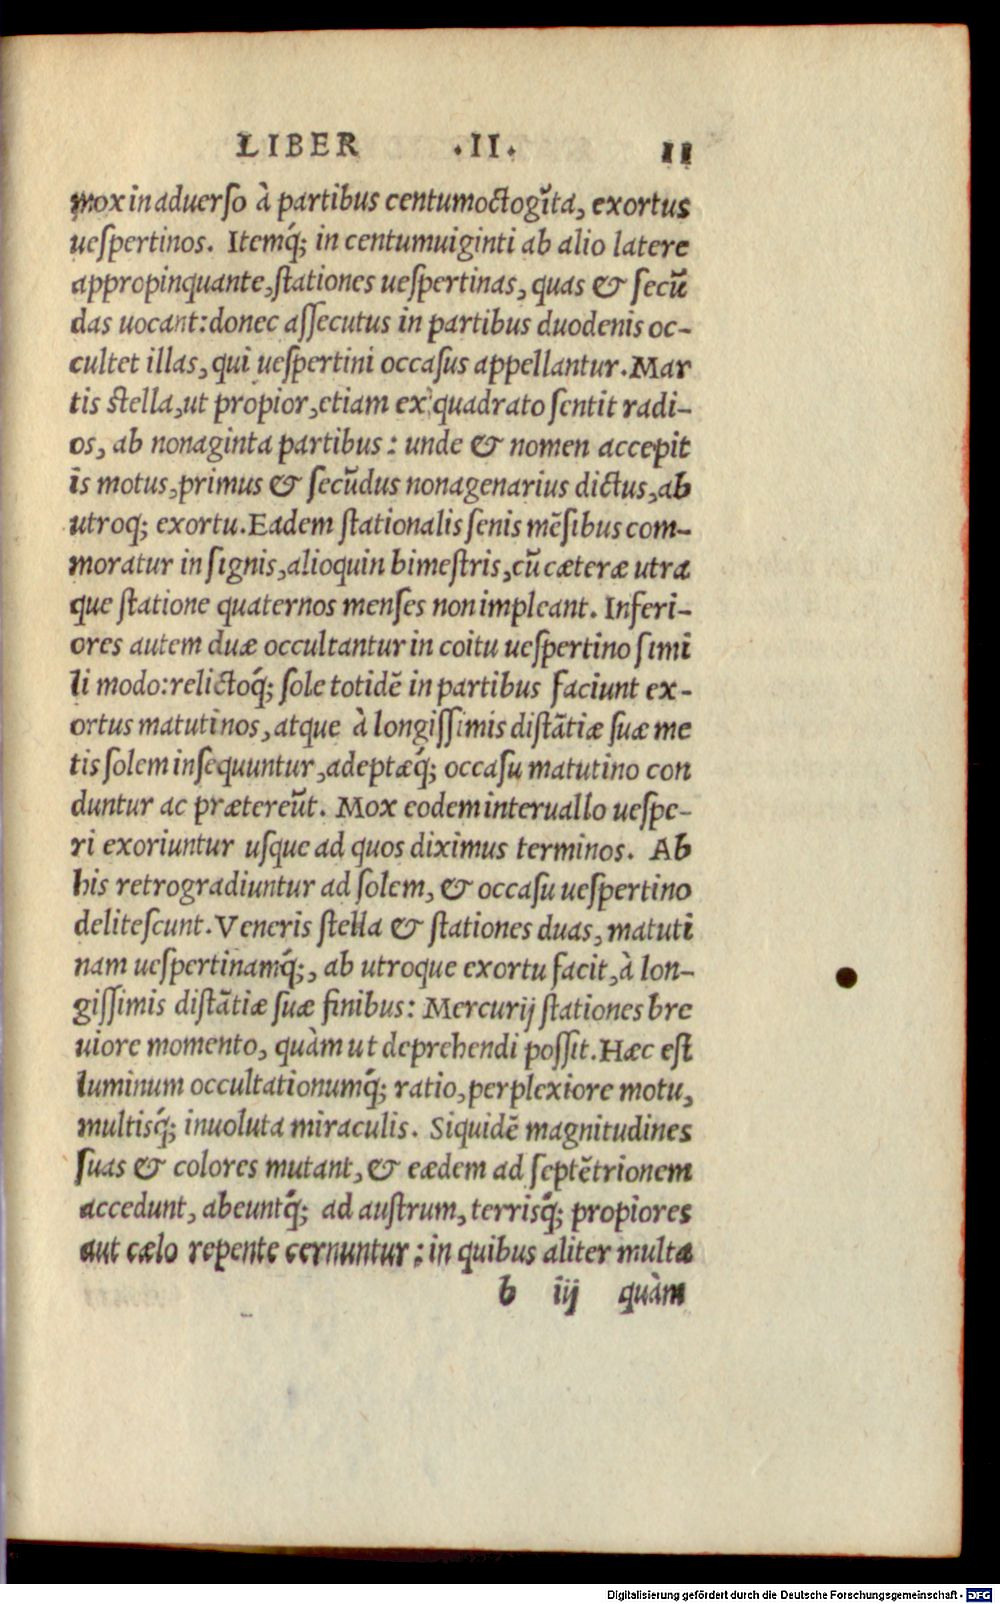 LIBER .II. 11
mox in aduerso à partibus centumoctogĩta, exortus
uespertinos. Itemq́; in centumuiginti ab alio latere
appropinquante, stationes uespertinas, quas & secũ
das uocant: donec assecutus in partibus duodenis oc-
cultet illas, qui uespertini occasus appellantur. Mar
tis stella, ut propior, etiam ex quadrato sentit radi-
os, ab nonaginta partibus: unde & nomen accepit
is motus, primus & secũdus nonagenarius dictus, ab
utroq; exortu. Eadem stationalis senis mẽsibus com-
moratur in signis, alioquin bimestris, cũ cæteræ utra
que statione quaternos menses non impleant. Inferi-
ores autem duæ occultantur in coitu uespertino simi
li modo: relictoq́; sole totidẽ in partibus faciunt ex-
ortus matutinos, atque à longissimis distãtiæ suæ me
tis solem insequuntur, adeptæq́; occasu matutino con
duntur ac prætereũt. Mox eodem interuallo uespe-
ri exoriuntur usque ad quos diximus terminos. Ab
his retrogradiuntur ad solem, & occasu uespertino
delitescunt. Veneris stella & stationes duas, matuti
nam uespertinamq́;, ab utroque exortu facit, à lon-
gissimis distãtiæ suæ finibus: Mercurij stationes bre
uiore momento, quàm ut deprehendi possit. Hæc est
luminum occultationumq́; ratio, perplexiore motu,
multisq́; inuoluta miraculis. Siquidẽ magnitudines
suas & colores mutant, & eædem ad septẽtrionem
accedunt, abeuntq́; ad austrum, terrisq́; propiores
aut cælo repente cernuntur: in quibus aliter multa
b iij quàm
Digitalisierung gefördert durch die Deutsche Forschungsgemeinschaft - DFG